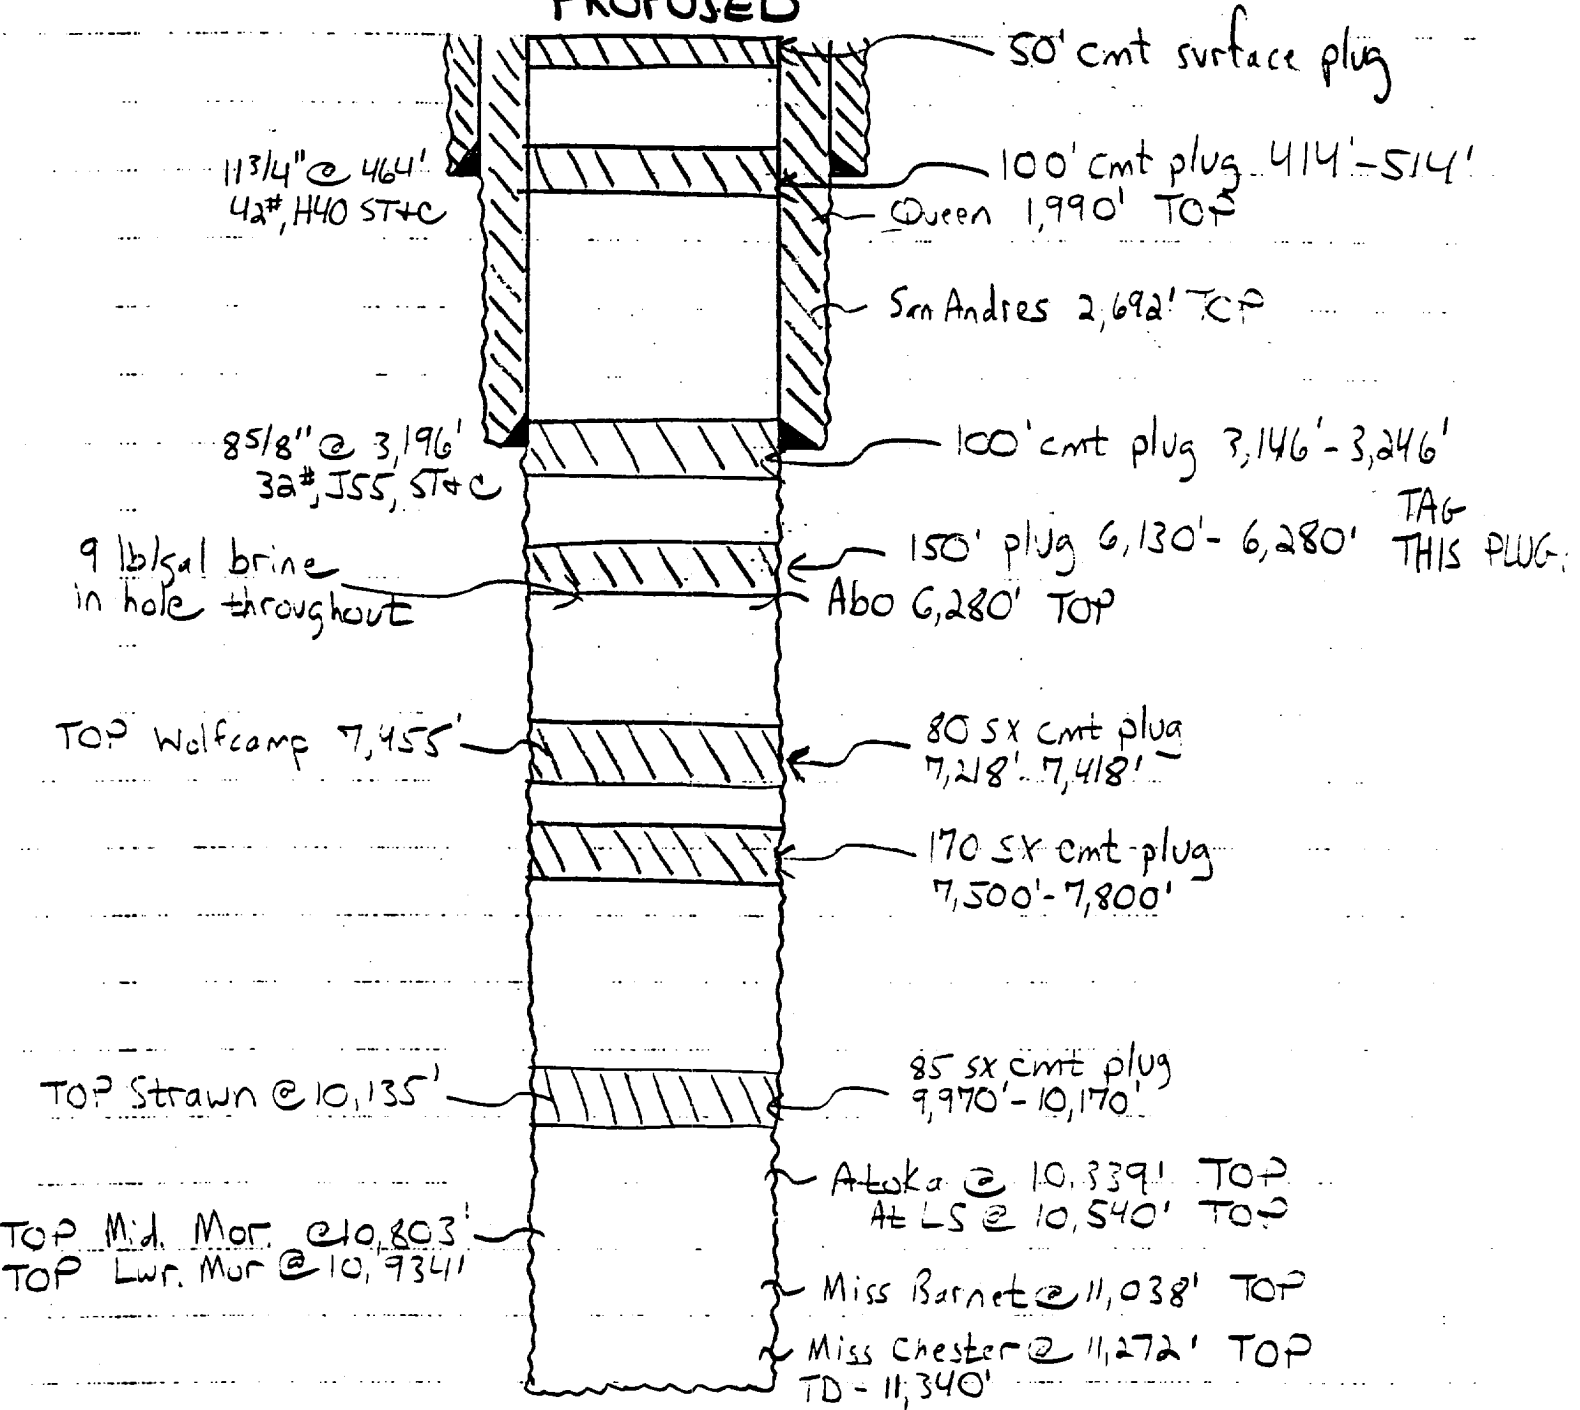 PROPOSED
50' cmt surface plug
11 3/4" @ 464'
42#, H40 ST+C
100' cmt plug 414'-514'
Queen 1,990' TOP
San Andres 2,692' TOP
8 5/8" @ 3,196'
32#, J55, ST+C
100' cmt plug 3,146'-3,246'
9 lb/gal brine
in hole throughout
150' plug 6,130'-6,280' TAG
THIS PLUG.
Abo 6,280' TOP
TOP Wolfcamp 7,455'
80 sx cmt plug
7,218'-7,418'
170 sx cmt plug
7,500'-7,800'
TOP Strawn @ 10,135'
85 sx cmt plug
9,970'-10,170'
Atoka @ 10,339' TOP
At LS @ 10,540' TOP
TOP Mid. Mor. @ 10,803'
TOP Lwr. Mor @ 10,934'
Miss Barnet @ 11,038' TOP
Miss Chester @ 11,272' TOP
TD - 11,340'